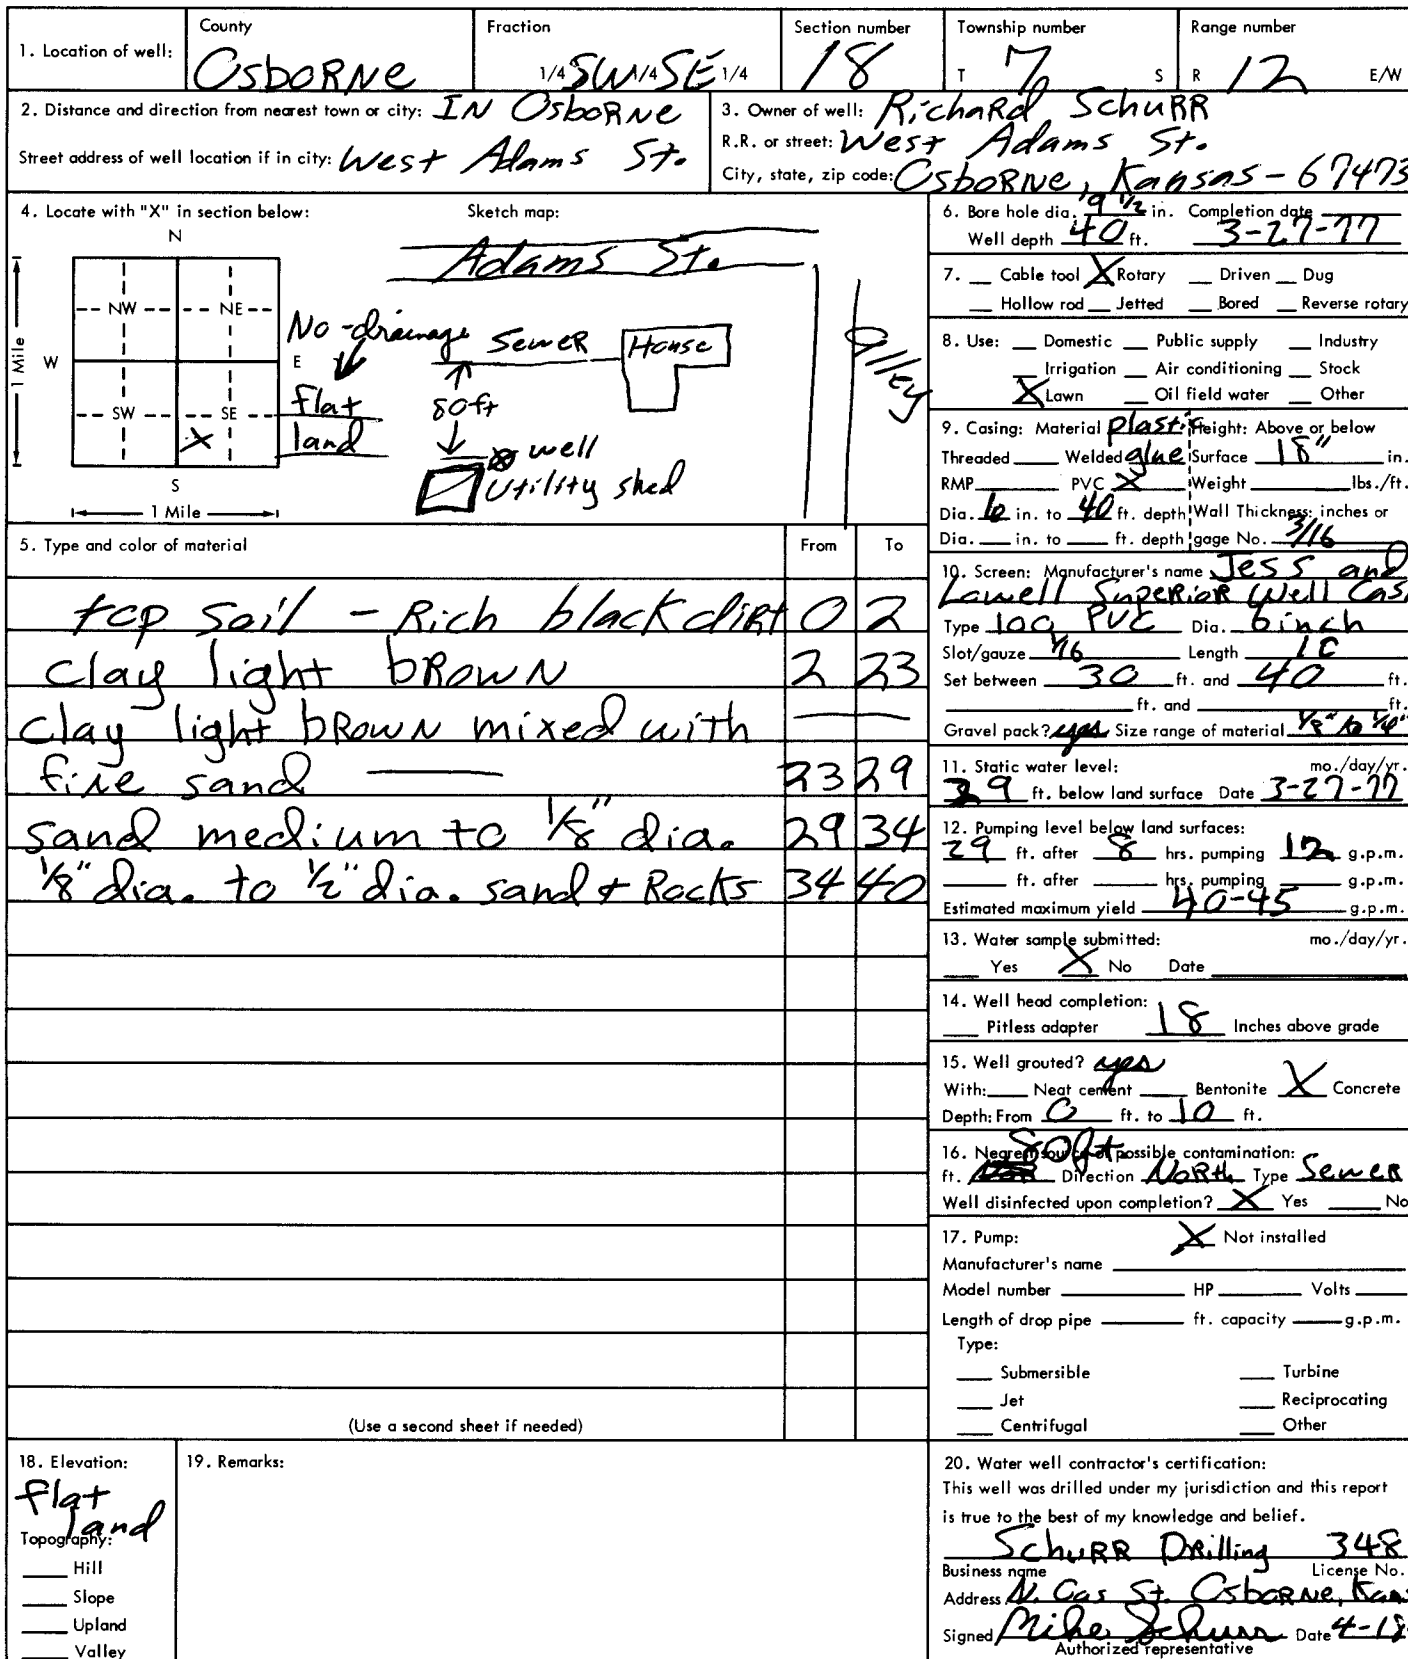 1. Location of well: County Osborne Fraction 1/4 SW 1/4 SE 1/4 Section number 18 Township number T 7 S Range number R 12 E/W
2. Distance and direction from nearest town or city: IN Osborne
Street address of well location if in city: West Adams St.
3. Owner of well: Richard Schurr
R.R. or street: West Adams St.
City, state, zip code: Osborne, Kansas - 67473
4. Locate with "X" in section below: Sketch map:
N
NW NE
W E
SW SE
X
S
1 Mile
1 Mile
Adams St.
No-drainage
flat
land
Sewer House
80ft
well
Utility shed
alley
5. Type and color of material From To
top soil - Rich black dirt 0 2
clay light brown 2 23
clay light brown mixed with
fine sand 23 29
sand medium to 1/8" dia. 29 34
1/8" dia. to 1/2" dia. sand + Rocks 34 40
(Use a second sheet if needed)
6. Bore hole dia. 9 1/2 in. Completion date
Well depth 40 ft. 3-27-77
7. Cable tool X Rotary Driven Dug
Hollow rod Jetted Bored Reverse rotary
8. Use: Domestic Public supply Industry
Irrigation Air conditioning Stock
X Lawn Oil field water Other
9. Casing: Material plastic Height: Above or below
Threaded Welded glue Surface 18" in.
RMP PVC X Weight lbs./ft.
Dia. 6 in. to 40 ft. depth Wall Thickness: inches or
Dia. in. to ft. depth gage No. 3/16
10. Screen: Manufacturer's name Jess and
Lowell Superior Well Cas
Type 100 PVC Dia. 6 inch
Slot/gauze 1/16 Length 10
Set between 30 ft. and 40 ft.
ft. and ft.
Gravel pack? yes Size range of material 1/8" to 1/4"
11. Static water level: mo./day/yr.
29 ft. below land surface Date 3-27-77
12. Pumping level below land surfaces:
29 ft. after 8 hrs. pumping 12 g.p.m.
ft. after hrs. pumping g.p.m.
Estimated maximum yield 40-45 g.p.m.
13. Water sample submitted: mo./day/yr.
Yes X No Date
14. Well head completion:
Pitless adapter 18 Inches above grade
15. Well grouted? yes
With: Neat cement Bentonite X Concrete
Depth: From 0 ft. to 10 ft.
16. Nearest source of possible contamination:
80ft
ft. Direction North Type Sewer
Well disinfected upon completion? X Yes No
17. Pump: X Not installed
Manufacturer's name
Model number HP Volts
Length of drop pipe ft. capacity g.p.m.
Type:
Submersible Turbine
Jet Reciprocating
Centrifugal Other
18. Elevation:
flat
land
Topography:
Hill
Slope
Upland
Valley
19. Remarks:
20. Water well contractor's certification:
This well was drilled under my jurisdiction and this report
is true to the best of my knowledge and belief.
Schurr Drilling 348
Business name License No.
Address N. Gas St. Osborne, Kans
Signed Mike Schurr Date 4-18-
Authorized representative